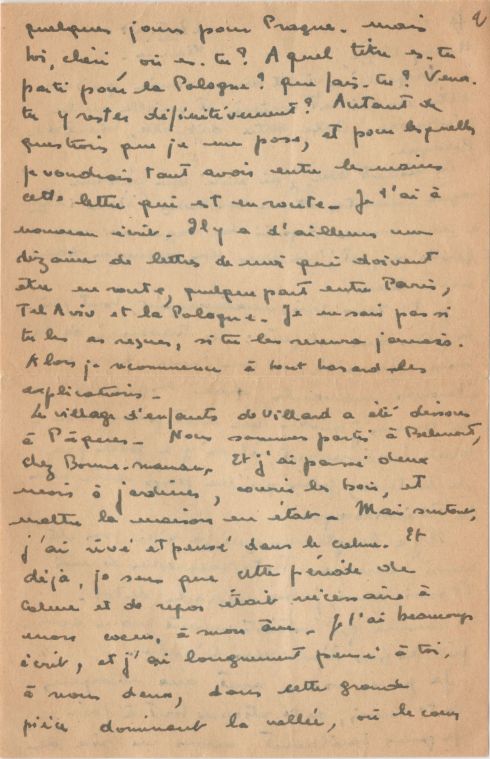 2
quelques jours pour Prague. mais
toi, chéri où es-tu? A quel titre es-tu
parti pour la Pologne? que fais-tu? Veux-
tu y rester définitivement? Autant de
questions que je me pose, et pour lesquelles
je voudrais tant avoir entre les mains
cette lettre qui est en route. Je t'ai à
nouveau écrit. Il y a d'ailleurs une
dizaine de lettres de moi qui doivent
être en route, quelque part entre Paris,
Tel Aviv et la Pologne. Je ne sais pas si
tu les as reçues, si tu les recevras jamais.
Alors je recommence à tout hasard les
explications.
Le village d'enfants de Villard a été dissous
à Pâques. Nous sommes partis à Belmont,
chez Bonne-maman. Et j'ai passé deux
mois à jardiner, courir les bois, et
mettre la maison en état. Mais surtout,
j'ai rêvé et pensé dans le calme. Et
déjà, je sens que cette période de
calme et de repos était nécessaire à
mon coeur, à mon âme. Je t'ai beaucoup
écrit, et j'ai longuement pensé à toi,
à nous deux, dans cette grande
pièce dominant la vallée, où le coeur